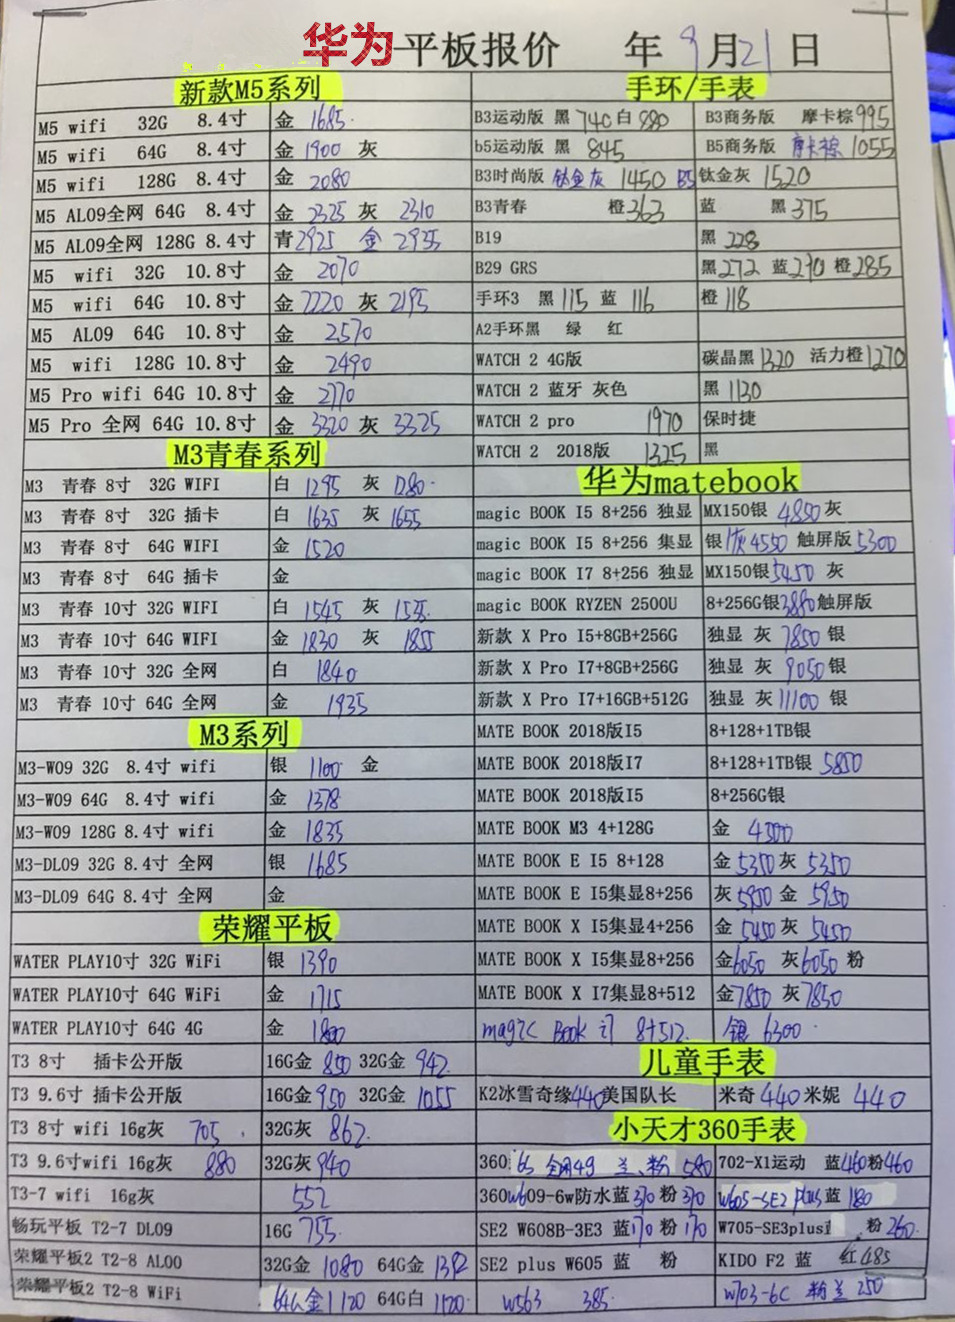 华为 平板报价 年 9月21日
新款M5系列
M5 wifi 32G 8.4寸 金 1685
M5 wifi 64G 8.4寸 金 1900 灰
M5 wifi 128G 8.4寸 金 2080
M5 AL09全网 64G 8.4寸 金 2325 灰 2310
M5 AL09全网 128G 8.4寸 青2925 金 2935
M5 wifi 32G 10.8寸 金 2070
M5 wifi 64G 10.8寸 金 2220 灰 2195
M5 AL09 64G 10.8寸 金 2570
M5 wifi 128G 10.8寸 金 2490
M5 Pro wifi 64G 10.8寸 金 2770
M5 Pro 全网 64G 10.8寸 金 3320 灰 3325
M3青春系列
M3 青春 8寸 32G WIFI 白 1295 灰 1280
M3 青春 8寸 32G 插卡 白 1635 灰 1655
M3 青春 8寸 64G WIFI 金 1520
M3 青春 8寸 64G 插卡 金
M3 青春 10寸 32G WIFI 白 1545 灰
M3 青春 10寸 64G WIFI 金 1830 灰 1855
M3 青春 10寸 32G 全网 白 1840
M3 青春 10寸 64G 全网 金 1935
M3系列
M3-W09 32G 8.4寸 wifi 银 1100 金
M3-W09 64G 8.4寸 wifi 金 1378
M3-W09 128G 8.4寸 wifi 金 1835
M3-DL09 32G 8.4寸 全网 银 1685
M3-DL09 64G 8.4寸 全网 金
荣耀平板
WATER PLAY10寸 32G WiFi 银 1390
WATER PLAY10寸 64G WiFi 金 1715
WATER PLAY10寸 64G 4G 金 1800
T3 8寸 插卡公开版 16G金 850 32G金 942
T3 9.6寸 插卡公开版 16G金 950 32G金 1055
T3 8寸 wifi 16g灰 705 32G灰 862
T3 9.6寸wifi 16g灰 880 32G灰 940
T3-7 wifi 16g灰 552
畅玩平板 T2-7 DL09 16G 755
荣耀平板2 T2-8 AL00 32G金 1080 64G金
荣耀平板2 T2-8 WiFi 64G金 1120 64G白 1120
手环/手表
B3运动版 黑 740 白 880 B3商务版 摩卡棕 995
b5运动版 黑 845 B5商务版 摩卡棕 1055
B3时尚版 钛金灰 1450 B5 钛金灰 1520
B3青春 橙 363 蓝 黑 375
B19 黑 228
B29 GRS 黑 272 蓝 270 橙 285
手环3 黑 115 蓝 116 橙 118
A2手环黑 绿 红
WATCH 2 4G版 碳晶黑 1320 活力橙 1270
WATCH 2 蓝牙 灰色 黑 1130
WATCH 2 pro 1970 保时捷
WATCH 2 2018版 1325 黑
华为matebook
magic BOOK I5 8+256 独显 MX150银 4850 灰
magic BOOK I5 8+256 集显 银 灰 4550 触屏版 5300
magic BOOK I7 8+256 独显 MX150银 5450 灰
magic BOOK RYZEN 2500U 8+256G银 3880 触屏版
新款 X Pro I5+8GB+256G 独显 灰 7850 银
新款 X Pro I7+8GB+256G 独显 灰 9050 银
新款 X Pro I7+16GB+512G 独显 灰 11100 银
MATE BOOK 2018版I5 8+128+1TB银
MATE BOOK 2018版I7 8+128+1TB银 5850
MATE BOOK 2018版I5 8+256G银
MATE BOOK M3 4+128G 金 4300
MATE BOOK E I5 8+128 金 5350 灰 5350
MATE BOOK E I5集显8+256 灰 5950 金 5950
MATE BOOK X I5集显4+256 金 5450 灰 5450
MATE BOOK X I5集显8+256 金 6050 灰 6050 粉
MATE BOOK X I7集显8+512 金 7850 灰 7850
magic Book i7 8+512 银 6300
儿童手表
K2冰雪奇缘 440 美国队长 米奇 440 米妮 440
小天才360手表
360 6S 全网4G 兰、粉 580 702-X1运动 蓝 460 粉 460
360 W609-6w防水蓝 370 粉 370 W605-SE2 plus 蓝 180
SE2 W608B-3E3 蓝 170 粉 170 W705-SE3plus 粉 260
SE2 plus W605 蓝 粉 KIDO F2 蓝 红 485
W563 385 W703-6C 粉兰 250